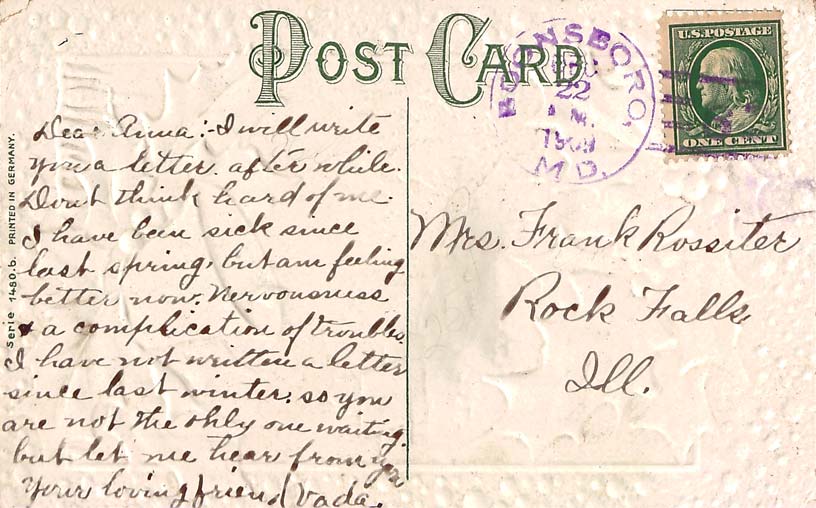 POST CARD
BOONSBORO,
DEC
22
1909
MD.
U.S. POSTAGE
ONE CENT
Serie 1480.b. PRINTED IN GERMANY.
Dear Anna:- I will write
you a letter after while.
Dont think hard of me
I have been sick since
last spring, but am feeling
better now. Nervousness
& a complication of troubles.
I have not written a letter
since last winter. so you
are not the only one waiting.
but let me hear from you
Your loving friend Vada.
Mrs. Frank Rossiter
Rock Falls
Ill.